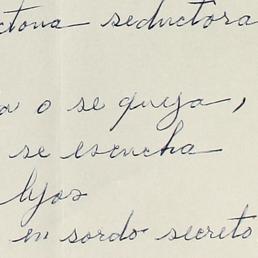 seductora
o se queja,
se escucha
lejos
en sordo secreto